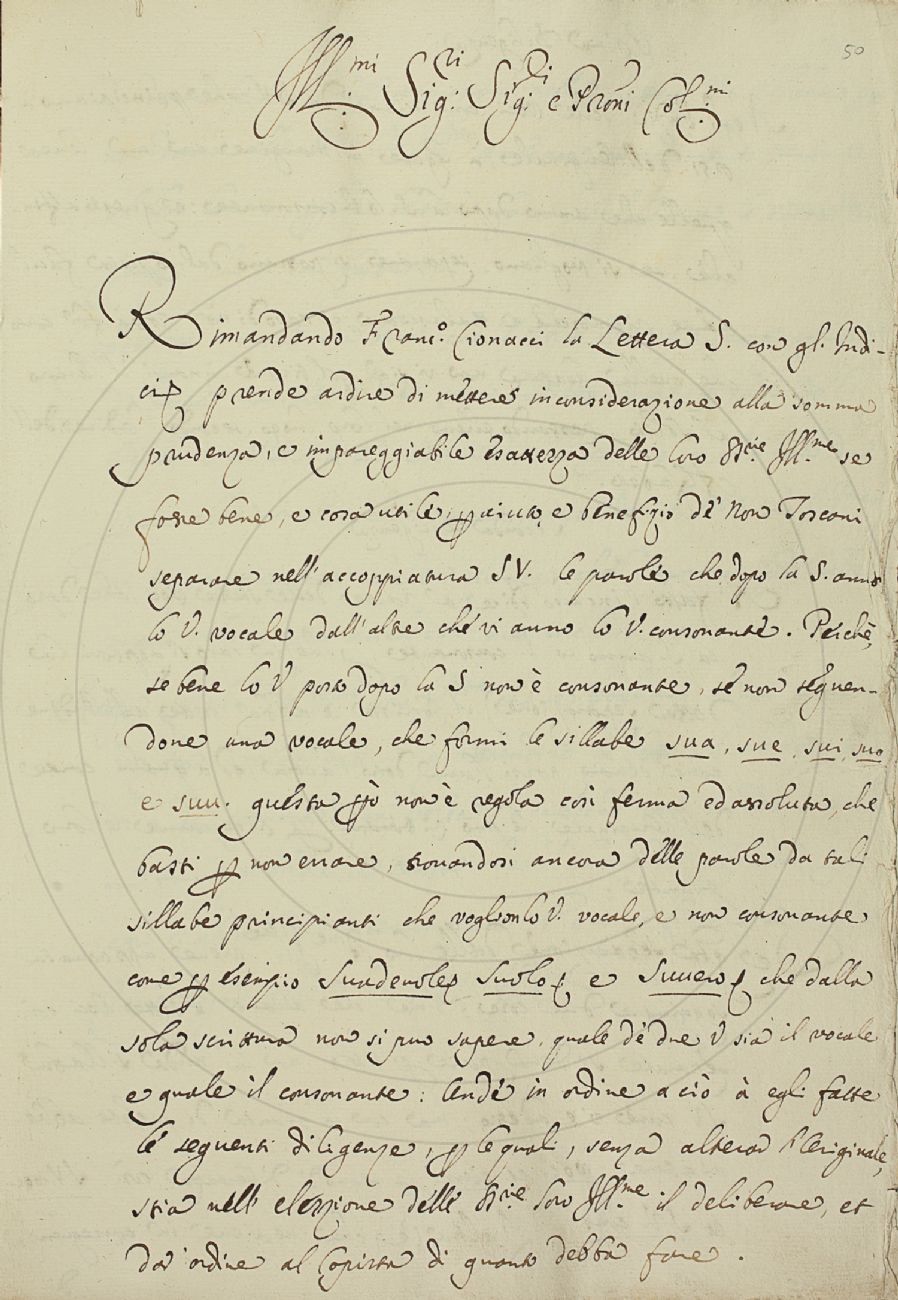 50
Ill.mi Sig:ri Sig:ri e Pròni Col.mi
Rimandando Franc.º Cionacci la Lettera S. con gl'Indi-
ci, prende ardire di mettere inconsiderazione alla somma
prudenza, e impareggiabile esattezza delle loro SS.rie Ill.me se
fosse bene, e cosa utile, p aiuto, e benefizio de' Non Toscani
separare nell'accoppiatura SV. le parole che dopo la S. anno
lo V. vocale dall'altre che vi anno lo V. consonante. Perchè,
se bene lo V posta dopo la S non è consonante, se non seguen-
done una vocale, che formi le sillabe sua, sue, sui, suo
e suu. questa pò non è regola così ferma ed assoluta, che
basti p non errare, trovandosi ancora delle parole da tali
sillabe principianti che voglion lo V. vocale, e non consonante
come p esempio Suadevole, Suolo, e Suvero, che dalla
sola scrittura non si può sapere, quale de' due V sia il vocale
e quale il consonante: Onde in ordine a ciò à egli fatte
le seguenti diligenze, p le quali, senza alterar l'Originale,
stia nell'elezione delle SS.rie loro Ill.me il deliberare, et
dar'ordine al Copista di quanto debba fare.